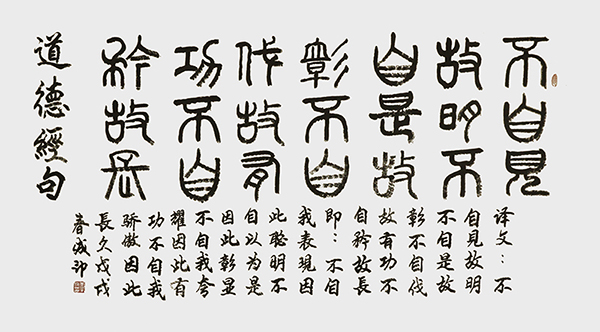 不自見
故明不
自是故
彰不自
伐故有
功不自
矜故長
译文：不
自見故明
不自是故
彰不自伐
故有功不
自矜故長
即：不自
我表現因
此聪明不
自以为是
因此彰显
不自我夸
耀因此有
功不自我
骄傲因此
長久戊戌
春成印
道德經句